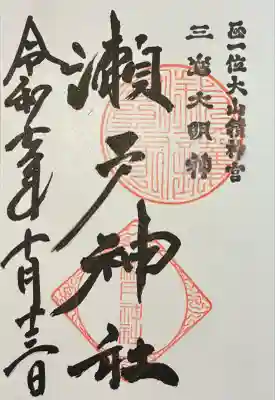 正一位大山積神宮
三島大明神
瀬戸神社
令和七年十月十三日